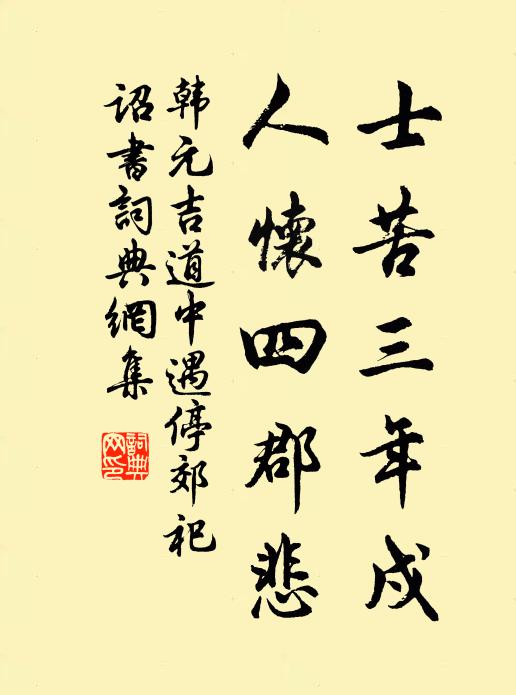 士苦三年戍
人懷四郡悲
韩元吉道中遇停郊祀
诏書詞典網集
詞典
网印